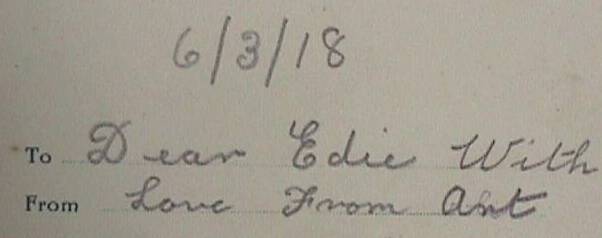 6/3/18
To Dear Edie With
From Love From Ant